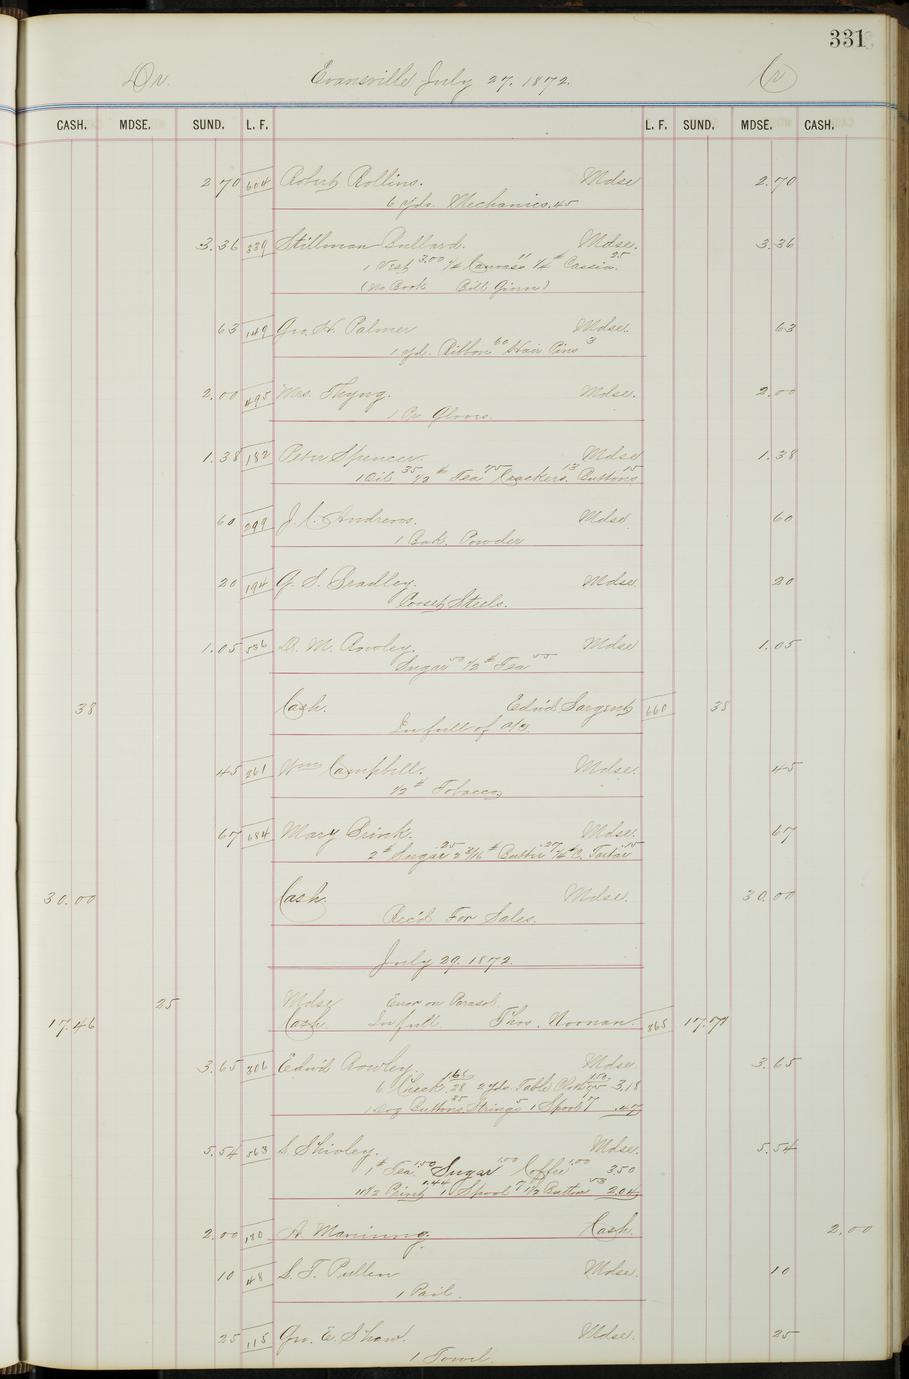 331
Dr. Evansville July 27. 1872. Cr
CASH. MDSE. SUND. L. F. L. F. SUND. MDSE. CASH.
2 70 604 Robert Rollins. Mdse 2.70
6 yds. Mechanics. 45
3.36 339 Stillman Bullard. Mdse. 3.36
1 Vest 3.00 1/4 Canvass 11 1/4 # Cassia. 25
(No Book Bill Given)
63 149 Geo. H. Palmer Mdse. 63
1 yd. Ribbon 60 Hair Pins 3
2.00 495 Mrs. Thyng. Mdse. 2.00
1 Pr Gloves.
1.38 182 Peter Spencer. Mdse 1.38
1 Oil 35 1/2 # Tea 75 Crackers. 13 Buttons 15
60 299 J. C. Andrews. Mdse. 60
1 Bak. Powder
20 194 G. S. Bradley. Mdse 20
Corset Steels.
1.05 586 D. M. Rowley. Mdse 1.05
Sugar 50 1/2 # Tea 55
38 Cash. Edw'd Sargent 660 38
In full of a/c
45 261 Wm Campbell. Mdse. 45
1/2 # Tobacco
67 684 Mary Brink. Mdse. 67
2 # Sugar 25 2 3/16 # Butter 27 1/4 # C. Tartar 15
30.00 Cash. Mdse. 30.00
Rec'd For Sales.
July 29. 1872.
25 Mdse Error on Parasol
17.46 Cash In full Thos. Noonan. 365 17.71
3.65 306 Edw'd Rowley. Mdse. 3.65
6 Check 28 1.68 2 yds. Table Cloth 75 1.50 3.18
1 Doz Buttons 35 Strings 5 1 Spool 7 .47
5.54 563 S. Shivley. Mdse. 5.54
1 # Tea 1.50 Sugar 1.00 Coffee 1.00 3.50
11 1/2 Print 1.44 1 Spool 7 1/2 Button 53 2.04
2.00 130 A. Manning. Cash. 2.00
10 48 S. T. Pullen Mdse. 10
1 Pail.
25 115 Geo. E. Shaw. Mdse. 25
1 Towel.